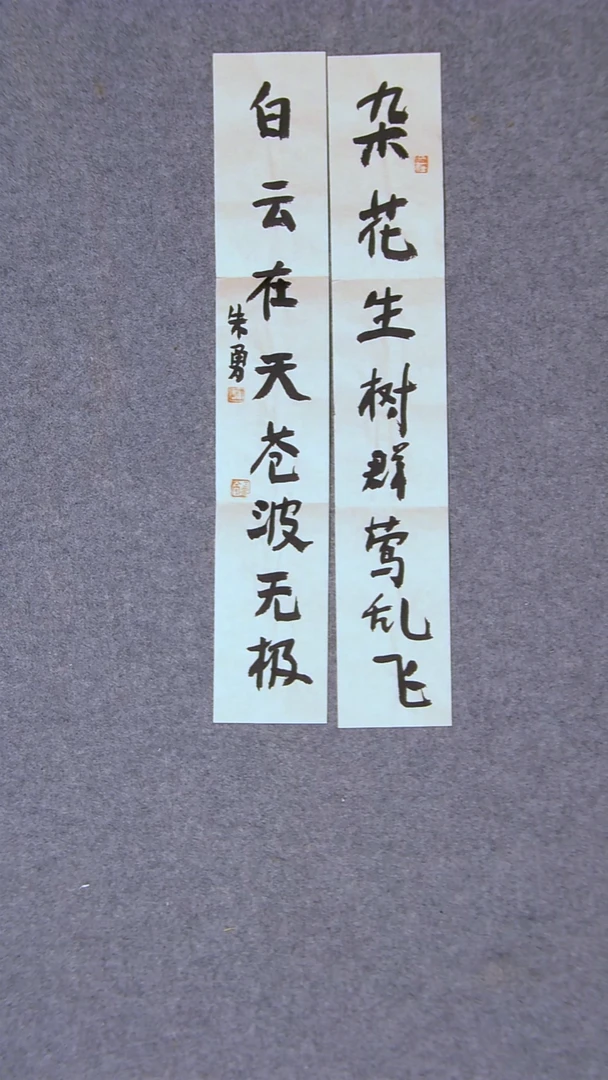 杂花生树群莺乱飞
白云在天苍波无极
朱勇